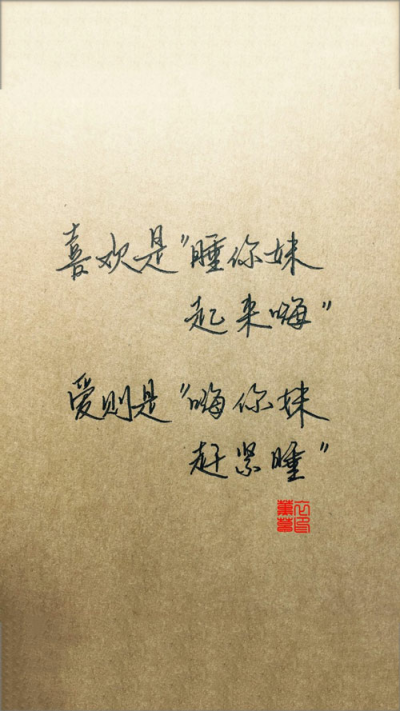 喜欢是"睡你妹
起来嗨"
爱则是"嗨你妹
赶紧睡"